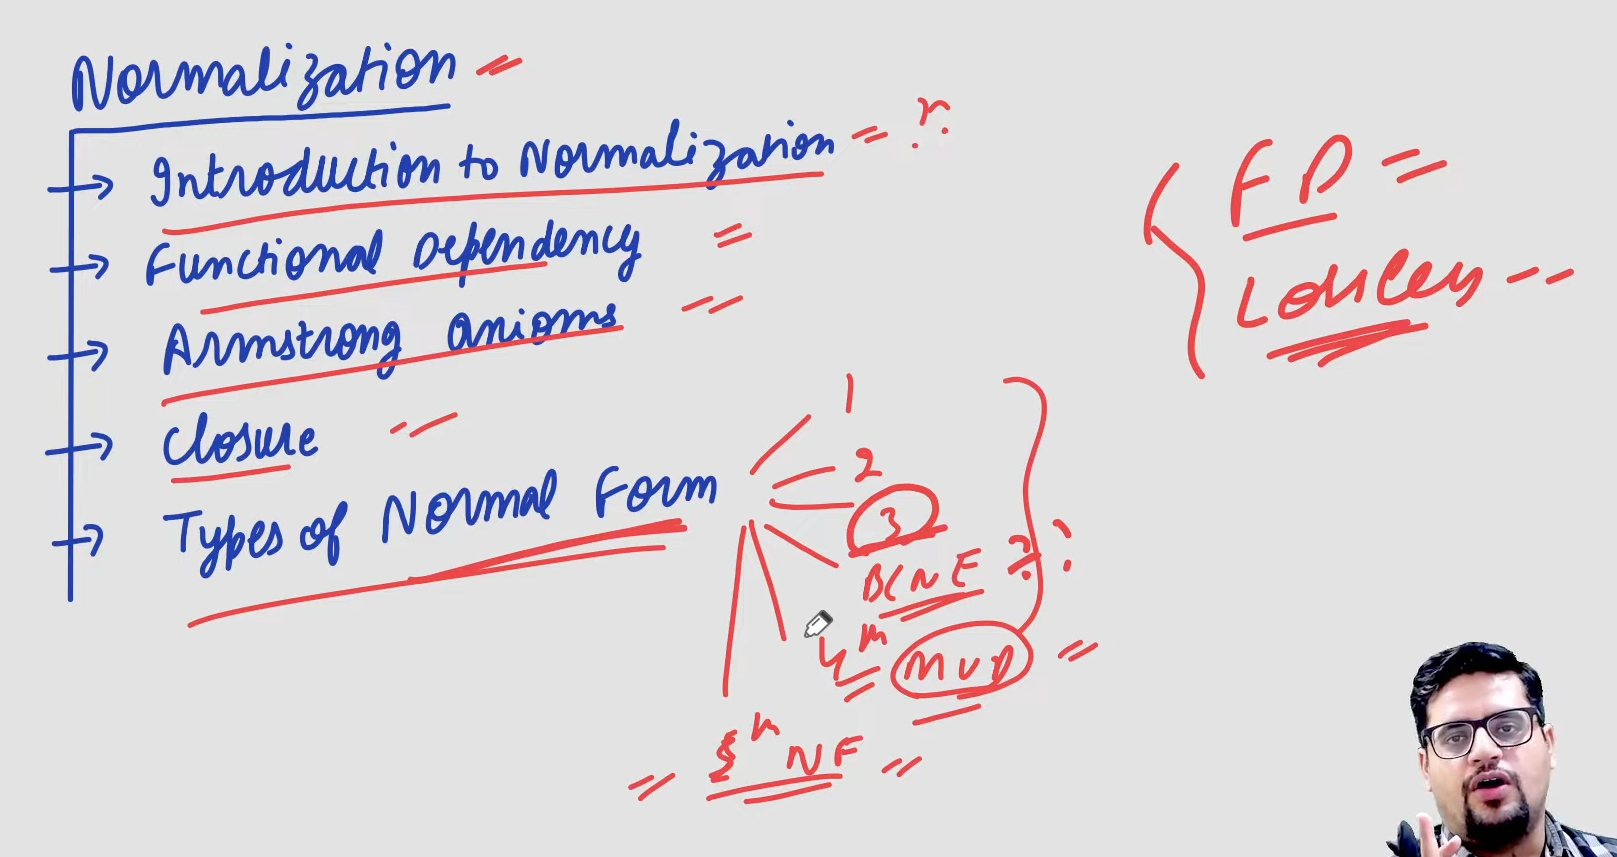 Normalization
Introduction to Normalization ?
Functional Dependency
Armstrong axioms
Closure
Types of Normal Form
1
2
3
BCNF ??
4th MVD
5th NF
FD
Lossless